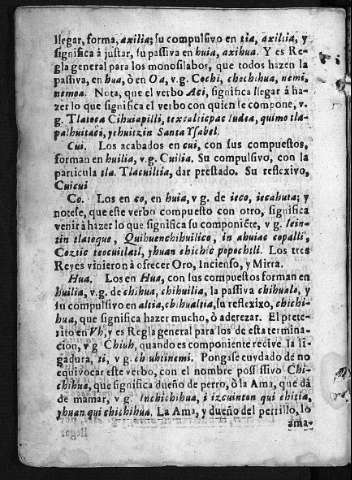 llegar, forma, axilia; su compulsivo en tia, axiltia, y
significa à justar, su passiva en huia, axihua. Y es Re-
gla general para los monosilabos, que todos hazen la
passiva, en hua, ò en Oa, v.g. Cochi, chochihua, nemi,
nemoa. Nota, que el verbo Aci, significa llegar á ha-
zer lo que significa el verbo con quien se compone, v.g.
Tlatoca Cihuapilli,
Santa Ysabel.
Cui. Los acabados en cui, con sus compuestos,
forman en huilia, v.g. Cuilia. Su compulsivo, con la
particula tla. Tlacuiltia, dar prestado. Su reflexivo,
Cuicui
Co. Los en co, en huia, v g. de ieco, iecahuia; y
notese, que este verbo compuesto con otro, significa
venir à hazer lo que significa su componiēte, v g. Ieiн-
tin tlatoque, Quihuenchihuilico, in ahuiac copalli,
Coztic teocuitlatl, yhuan chichic popochtli. Los tres
Reyes vinieron à ofrecer Oro, Incienso, y Mirra.
Hua. Los en Hua, con sus compuestos forman en
huilia, v.g. de chihua, chihuilia, la passiva chihualo, y
su compulsivo en altia, chihualtia, su reflexivo, chichi-
hua, que significa hazer mucho, ò aderezar. El prete-
rito en Vh, y es Regla general para los de esta termina-
cion, v g Chiuh, quando es componiente recive la li-
gadura, ti, v g. chiuhtinemi. Pongase cuydado de no
equivocar este verbo, con el nombre possessivo Chi-
chihua, que significa dueño de perro, ò la Ama, que dá
de mamar, v g Inchichihua, i izcuinton qui chitia,
yhuan qui chichihua. La Ama, y dueño del perrillo, lo
ama-